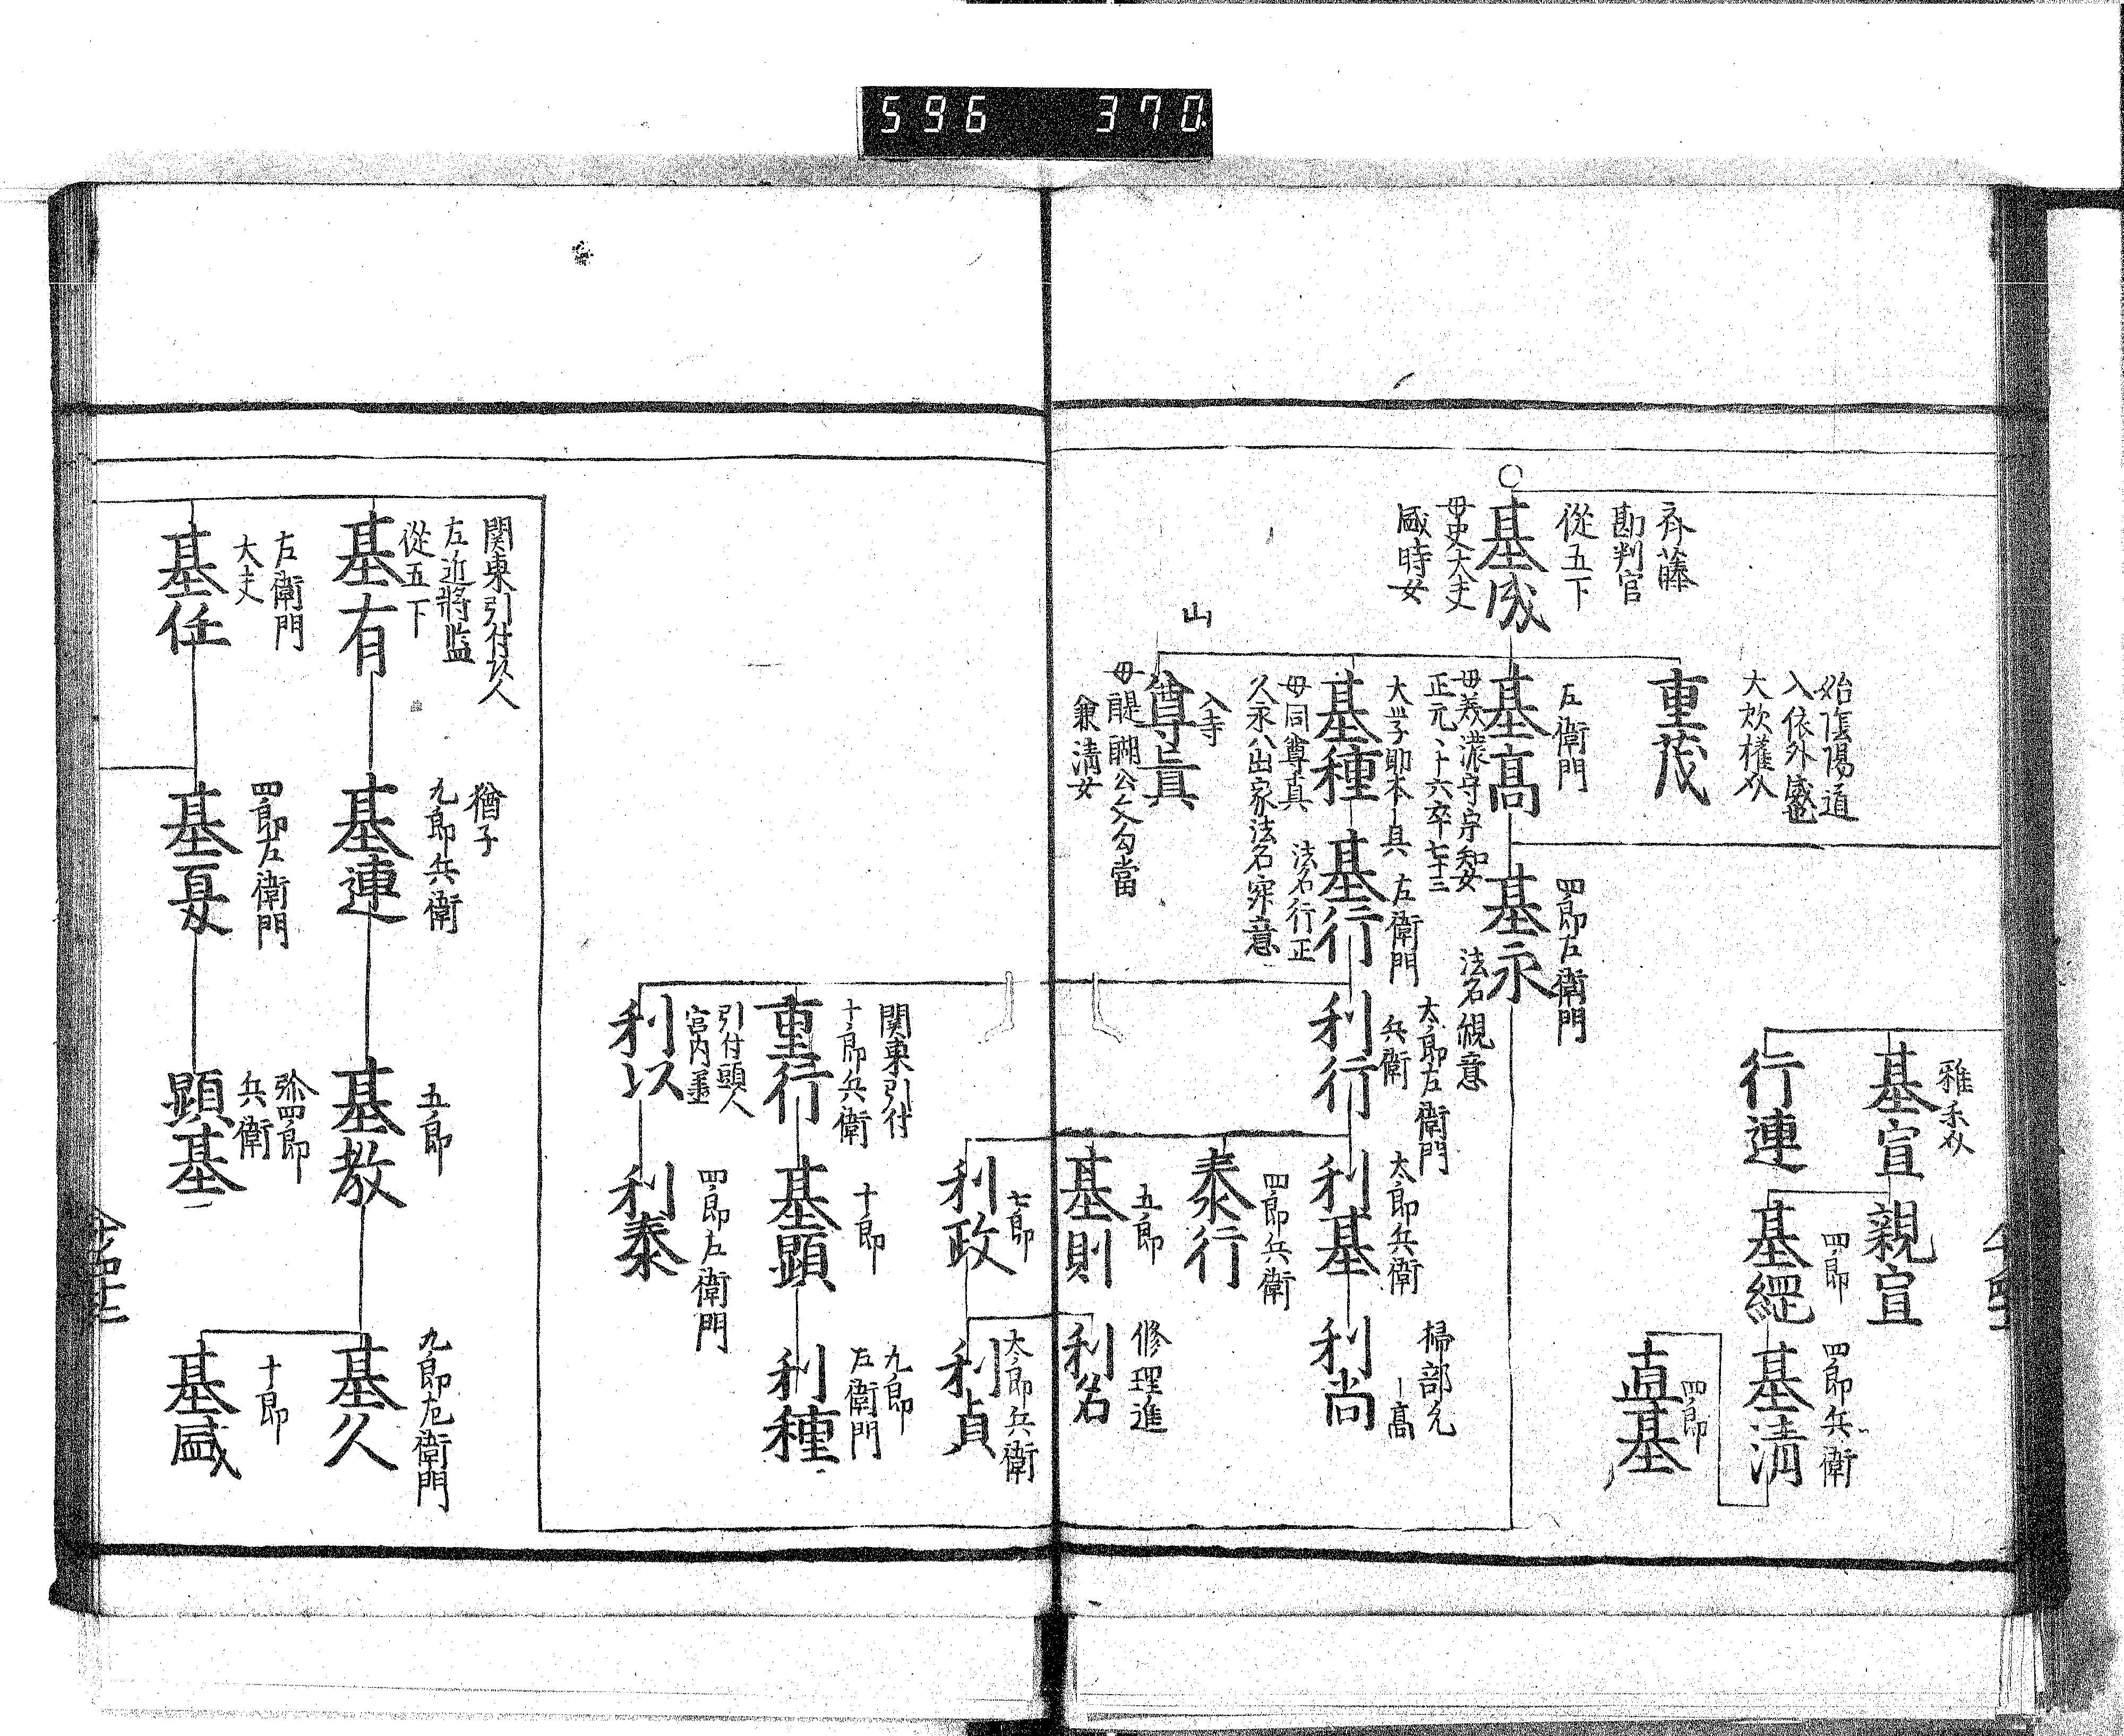 596 370
斉藤
勘判官
從五下
基成
母史大夫
盛時女
始陰陽道
入依外盛也
大炊権亦
重茂
左衛門
基高
大学助本
基種
母同尊真
久永八出家法名寂意
山
入寺
尊真
母醍醐公文勾當
兼清女
四郎左衛門
基永
法名観意
左衛門
基行
法名行正
雅楽亦
基宣
行連
親宣
四郎
基経
四郎兵衛
基清
四郎
直基
太郎左衛門
兵衛
利行
太郎兵衛
利基
四郎兵衛
泰行
五郎
基則
七郎
利政
掃部允
高
利尚
修理進
利名
太郎兵衛
利貞
関東引付
十郎兵衛
重行
引付頭人
宮内
利以
十郎
基顕
四郎左衛門
利泰
九郎
左衛門
利種
関東引付頭人
左近将監
從五下
基有
左衛門
大夫
基任
猶子
九郎兵衛
基連
四郎左衛門
基夏
五郎
基教
弥四郎
兵衛
顕基
九郎左衛門
基久
十郎
基盛